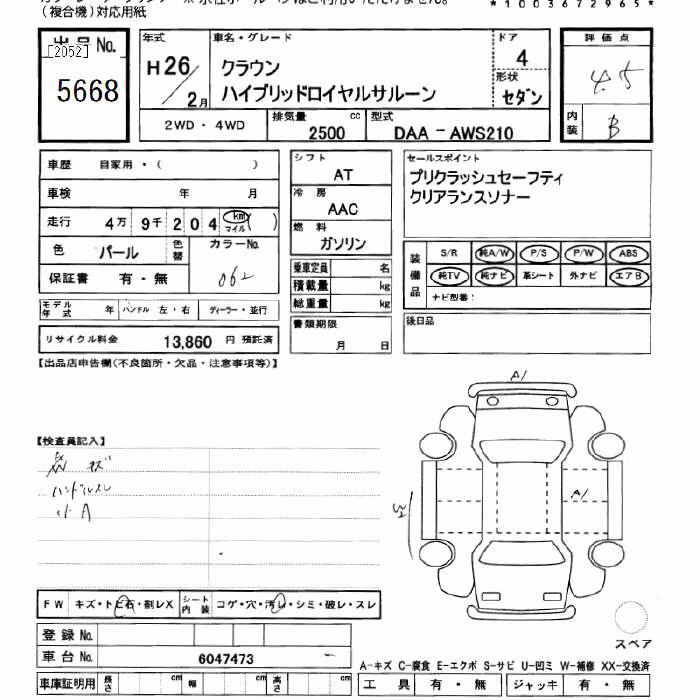 (複合機)対応用紙
*1003672965*
出品No.
[2052]
5668
年式
H26/2月
車名・グレード
クラウン
ハイブリッドロイヤルサルーン
ドア
4
形状
セダン
評価点
4.5
内装
B
2WD・4WD
排気量
2500
cc
型式
DAA-AWS210
車歴 自家用・( )
車検 年 月
走行 4万 9千 2 0 4 km マイル ( )
色 パール 色替 カラーNo. 062
保証書 有・無
シフト
AT
冷房
AAC
燃料
ガソリン
乗車定員 名
積載量 kg
総重量 kg
セールスポイント
プリクラッシュセーフティ
クリアランスソナー
装備品
S/R 純A/W P/S P/W ABS
純TV 純ナビ 革シート 外ナビ エアB
ナビ型番:
モデル年式 年 ハンドル 左・右 ディーラー・並行
リサイクル料金 13,860 円 預託済
書類期限
月 日
後日品
【出品店申告欄(不良箇所・欠品・注意事項等)】
A1
【検査員記入】
キズ
ハンドルスレ
小A
A1
FW キズ・トビ石・割レX シート内装 コゲ・穴・汚レ・シミ・破レ・スレ
登録No.
車台No. 6047473
スペア
A-キズ C-腐食 E-エクボ S-サビ U-凹ミ W-補修 XX-交換済
車庫証明用 長さ cm 幅 cm 高さ cm
工具 有・無 ジャッキ 有・無